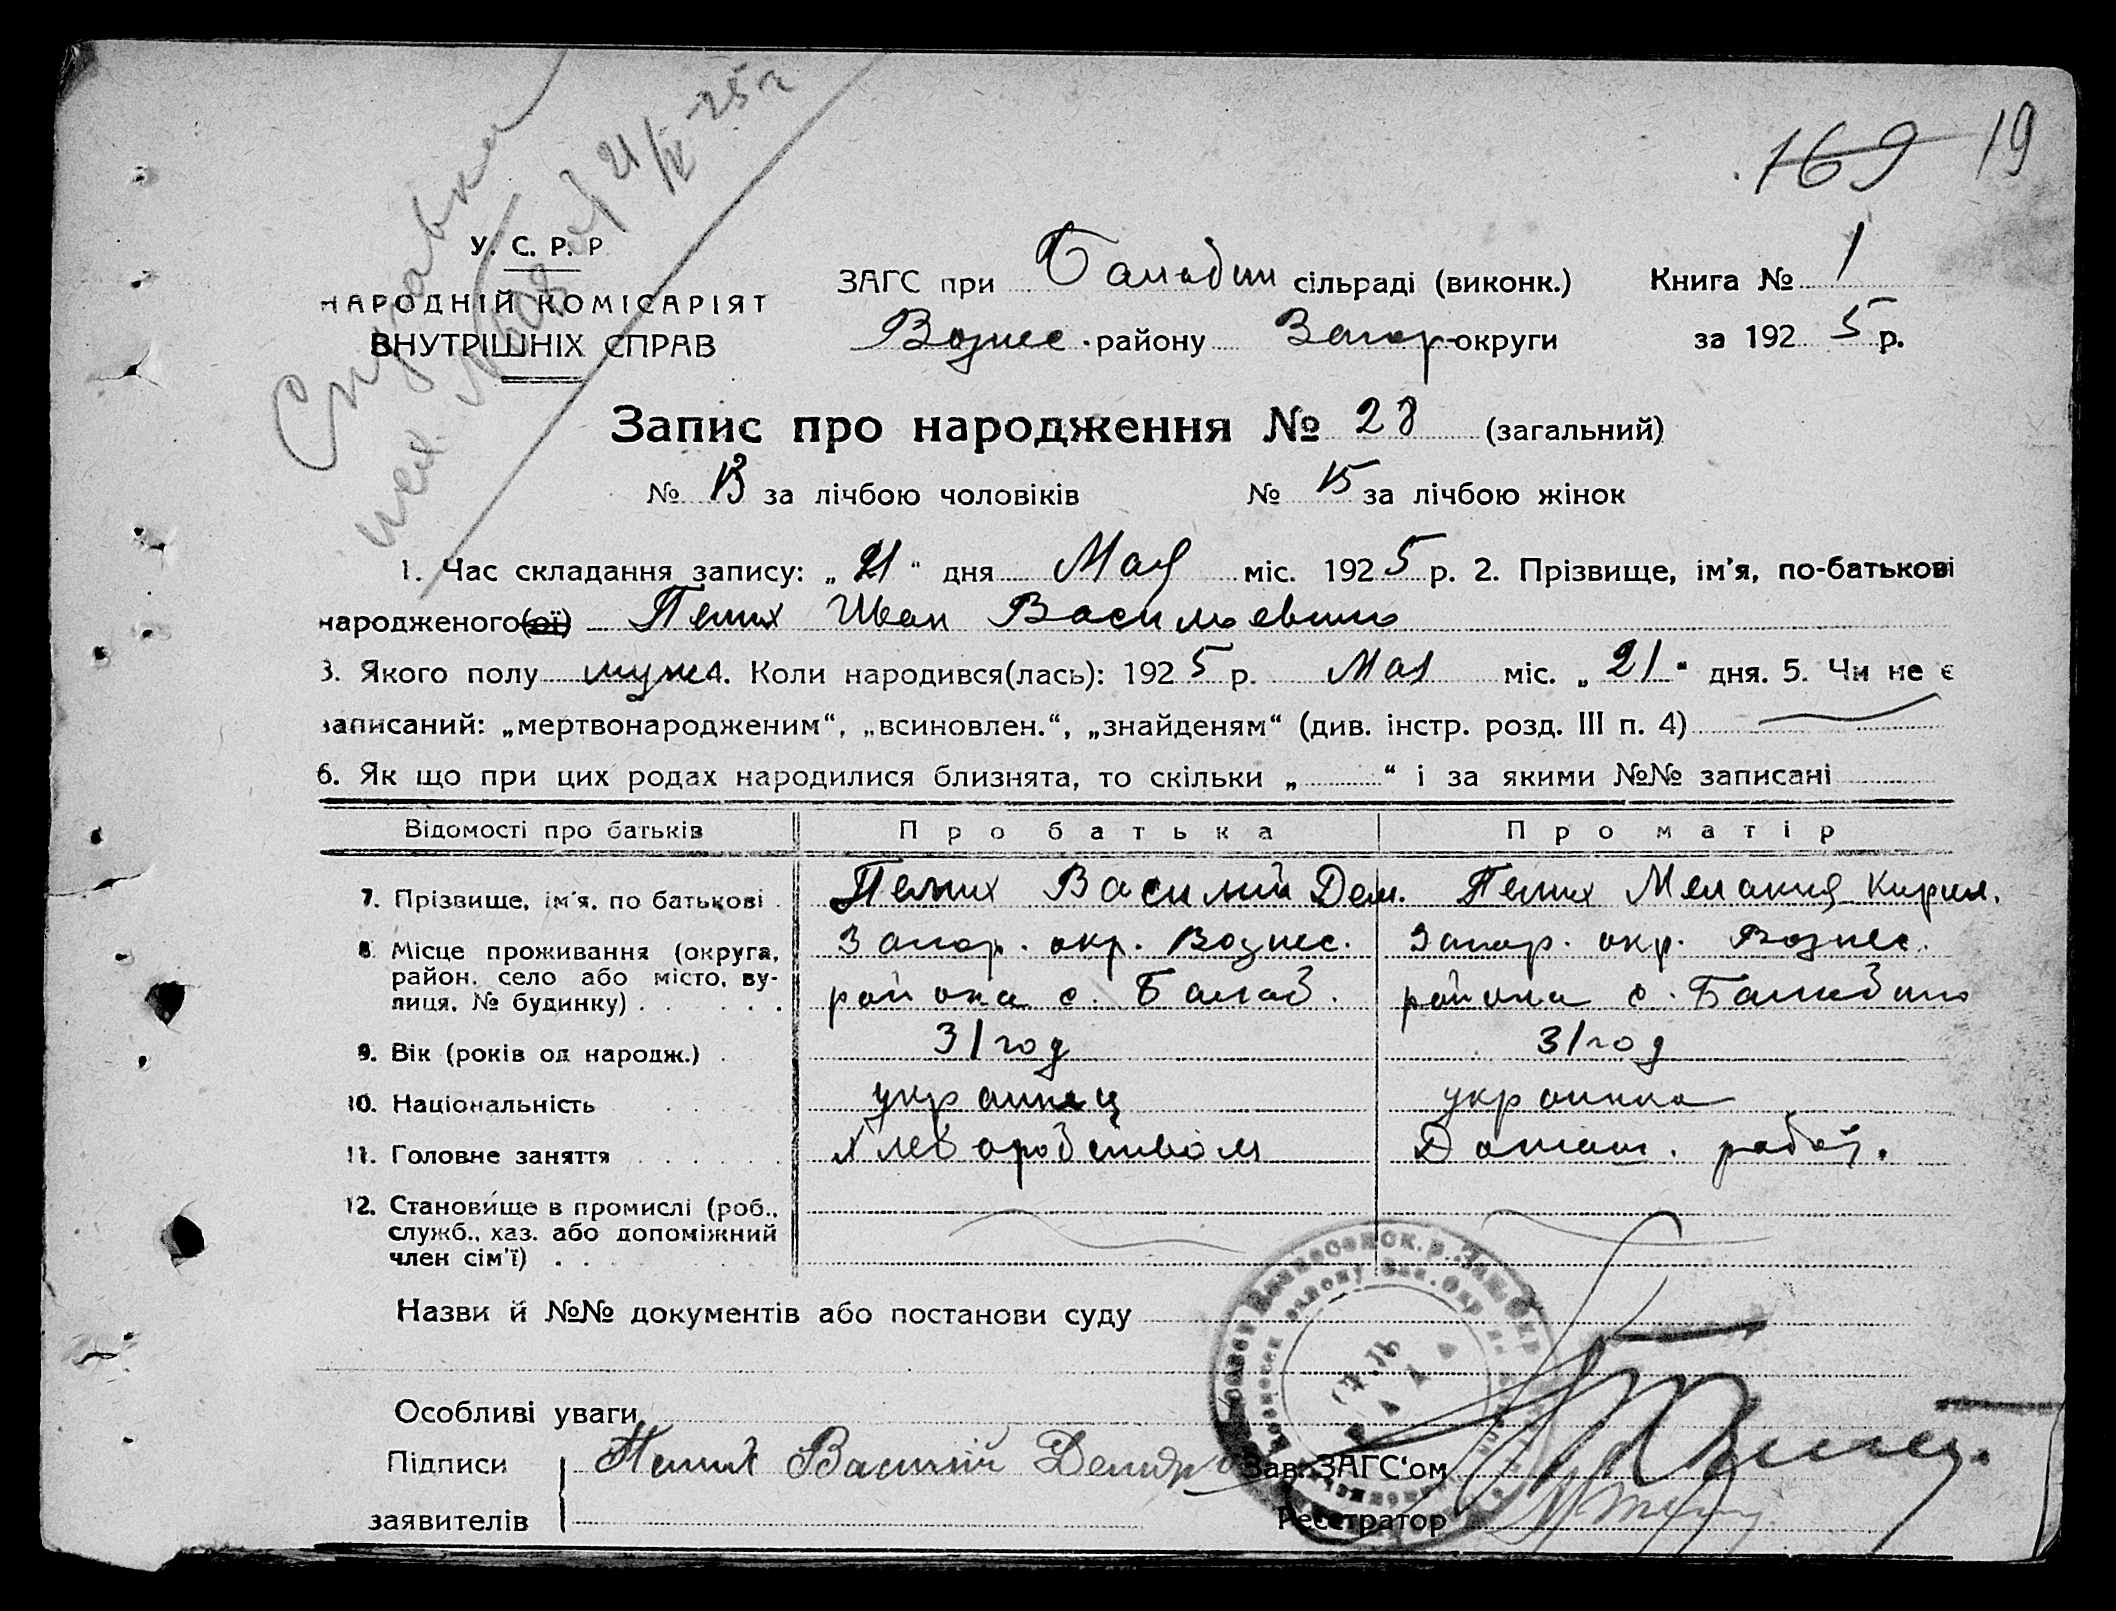 169 19
Справка
21/V-25 г
У. С. Р. Р
НАРОДНІЙ КОМІСАРІЯТ
ВНУТРІШНІХ СПРАВ
ЗАГС при Балабин сільраді (виконк.) Книга № 1
Вознес. району Запор. округи за 1925 р.
Запис про народження № 28 (загальний)
№ 13 за лічбою чоловіків № 15 за лічбою жінок
1. Час складання запису: „21“ дня Мая міс. 1925 р. 2. Прізвище, ім'я, по-батькові
народженого(ої) Пелих Иван Васильевич
3. Якого полу муж 4. Коли народився(лась): 1925 р. Мая міс. „21“ дня. 5. Чи не є
записаний: „мертвонародженим“, „всиновлен.“, „знайденям“ (див. інстр. розд. III п. 4)
6. Як що при цих родах народилися близнята, то скільки „ “ і за якими №№ записані
Відомості про батьків Про батька Про матір
7. Прізвище, ім'я, по батькові Пелих Василий Дем. Пелих Мелания Кирил.
8. Місце проживання (округа, Запор. окр. Вознес. Запор. окр. Вознес.
район, село або місто, ву-
лиця, № будинку) района с. Балаб. района с. Балабино
9. Вік (років од народж.) 31 год 31 год
10. Національність украинец украинка
11. Головне заняття хлеборобством Домаш. работ.
12. Становище в промислі (роб.,
служб., хаз. або допоміжний
член сім'ї)
Назви й №№ документів або постанови суду
Особливі уваги
Підписи Пелих Василий Зав. ЗАГС'ом
заявителів Реєстратор